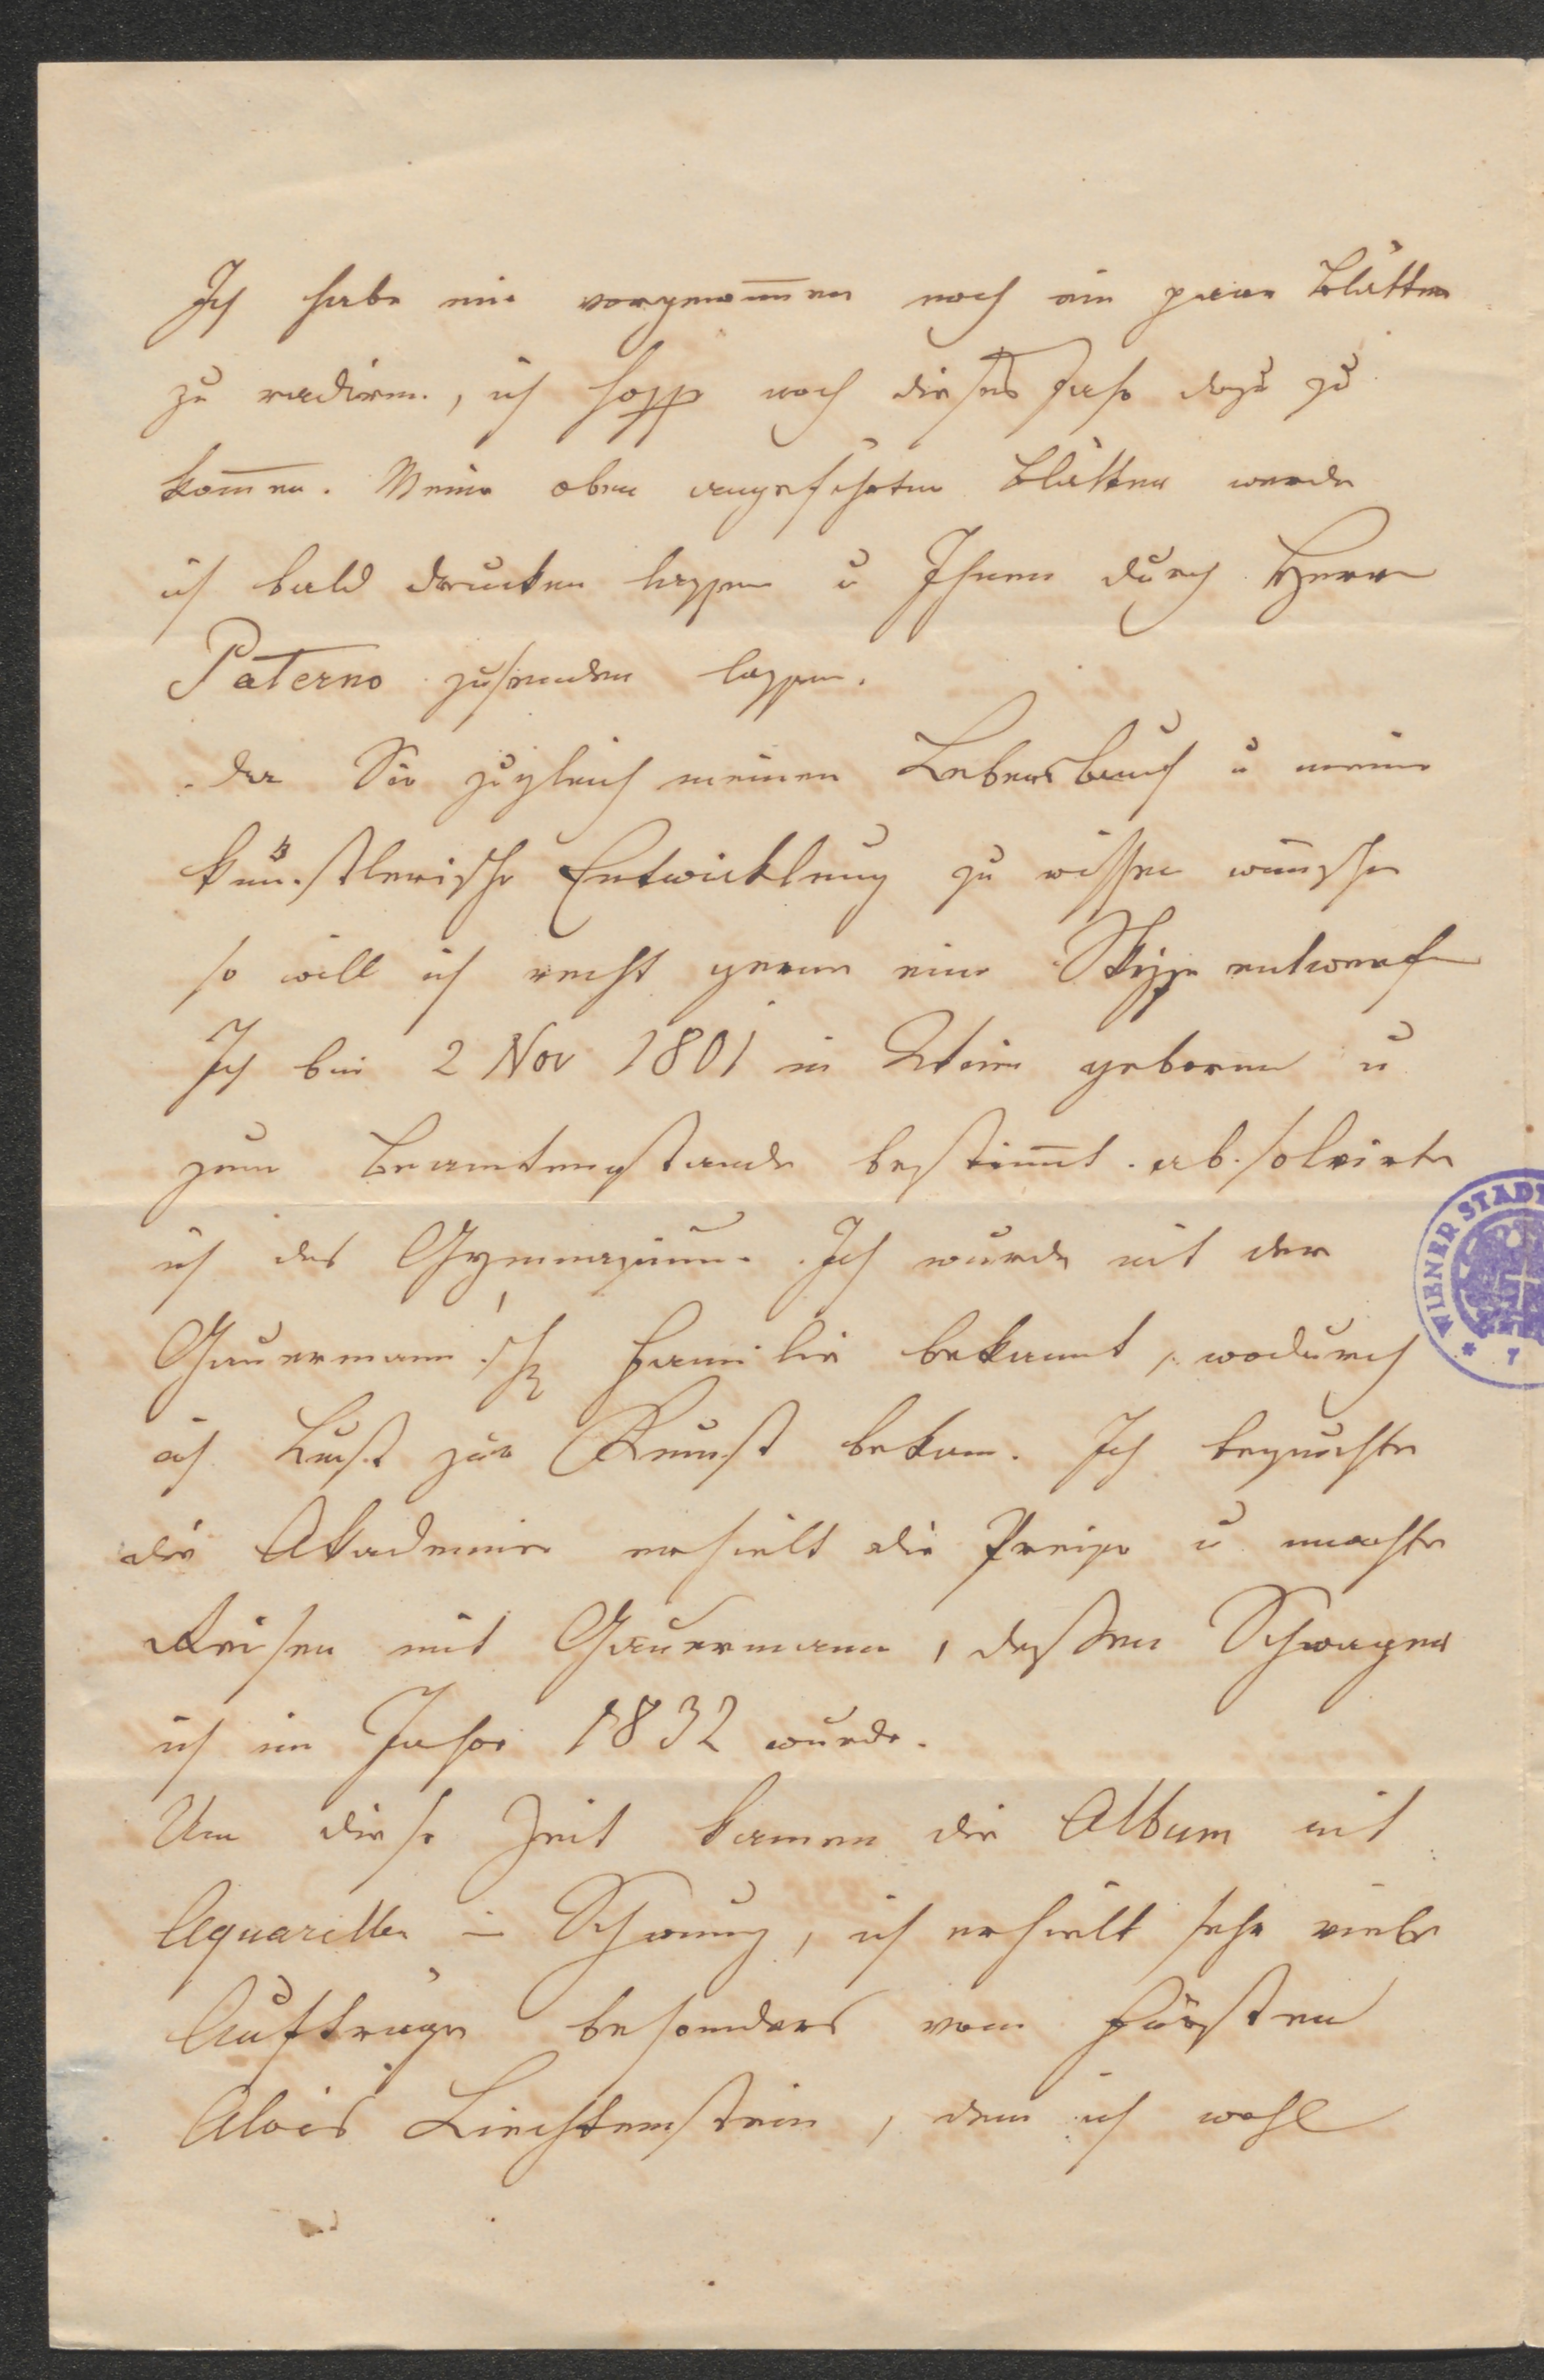 Ich habe mir vorgenom̄en noch ein paar Blätter
zu radiren, ich hoffe noch dieses Jahr dazu zu
kom̄en. Meine oben angeführten Blätter werde
ich bald drucken lassen u Ihnen durch Herrn
Paterno zusenden lassen.
da Sie zugleich meinen Lebenslauf u meine
künstlerische Entwicklung zu wissen wünschen
so will ich recht gerne eine Skizze entwerfen
Ich bin 2 Nov 1801 in Wien geboren u
zum Beamtenstande bestim̄t absolvirte
ich das Gymnasium. Ich wurde mit der
Gauermann'sch Familie bekannt, wodurch
ich Lust zur Kunst bekam. Ich besuchte
die Akademie erhielt die Preise u machte
Reisen mit Gauermann, dessen Schwager
ich im Jahre 1832 wurde.
Um diese Zeit kamen die Album mit
Aquarellen in Schwung, ich erhielt sehr viele
Aufträge besonders vom Fürsten
Alois Liechtenstein, dem ich wohl
WIENER STADT